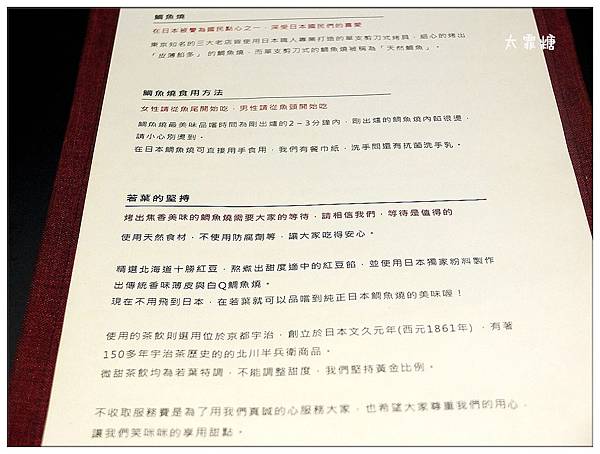 鯛魚燒
太霏糖
在日本被譽為國民點心之一，深受日本國民們的喜愛
東京知名的三大老店皆使用日本職人專業打造的單支剪刀式烤具，細心的烤出
「皮薄餡多」的鯛魚燒，而單支剪刀式的鯛魚燒被稱為「天然鯛魚」。
鯛魚燒食用方法
女性請從魚尾開始吃，男性請從魚頭開始吃
鯛魚燒最美味品嚐時間為剛出爐的2~3分鐘內，剛出爐的鯛魚燒內餡很燙，
請小心別燙到。
在日本鯛魚燒可直接用手食用，我們有餐巾紙，洗手間還有抗菌洗手乳。
若葉的堅持
烤出焦香美味的鯛魚燒需要大家的等待，請相信我們，等待是值得的
使用天然食材，不使用防腐劑等，讓大家吃得安心。
精選北海道十勝紅豆，熬煮出甜度適中的紅豆餡，並使用日本獨家粉料製作
出傳統香味薄皮與白Q鯛魚燒。
現在不用飛到日本，在若葉就可以品嚐到純正日本鯛魚燒的美味喔！
使用的茶飲則選用位於京都宇治，創立於日本文久元年(西元1861年)，有著
150多年宇治茶歷史的的北川半兵衛商品。
微甜茶飲均為若葉特調，不能調整甜度，我們堅持黃金比例。
不收取服務費是為了用我們真誠的心服務大家，也希望大家尊重我們的用心，
讓我們笑咪咪的享用甜點。